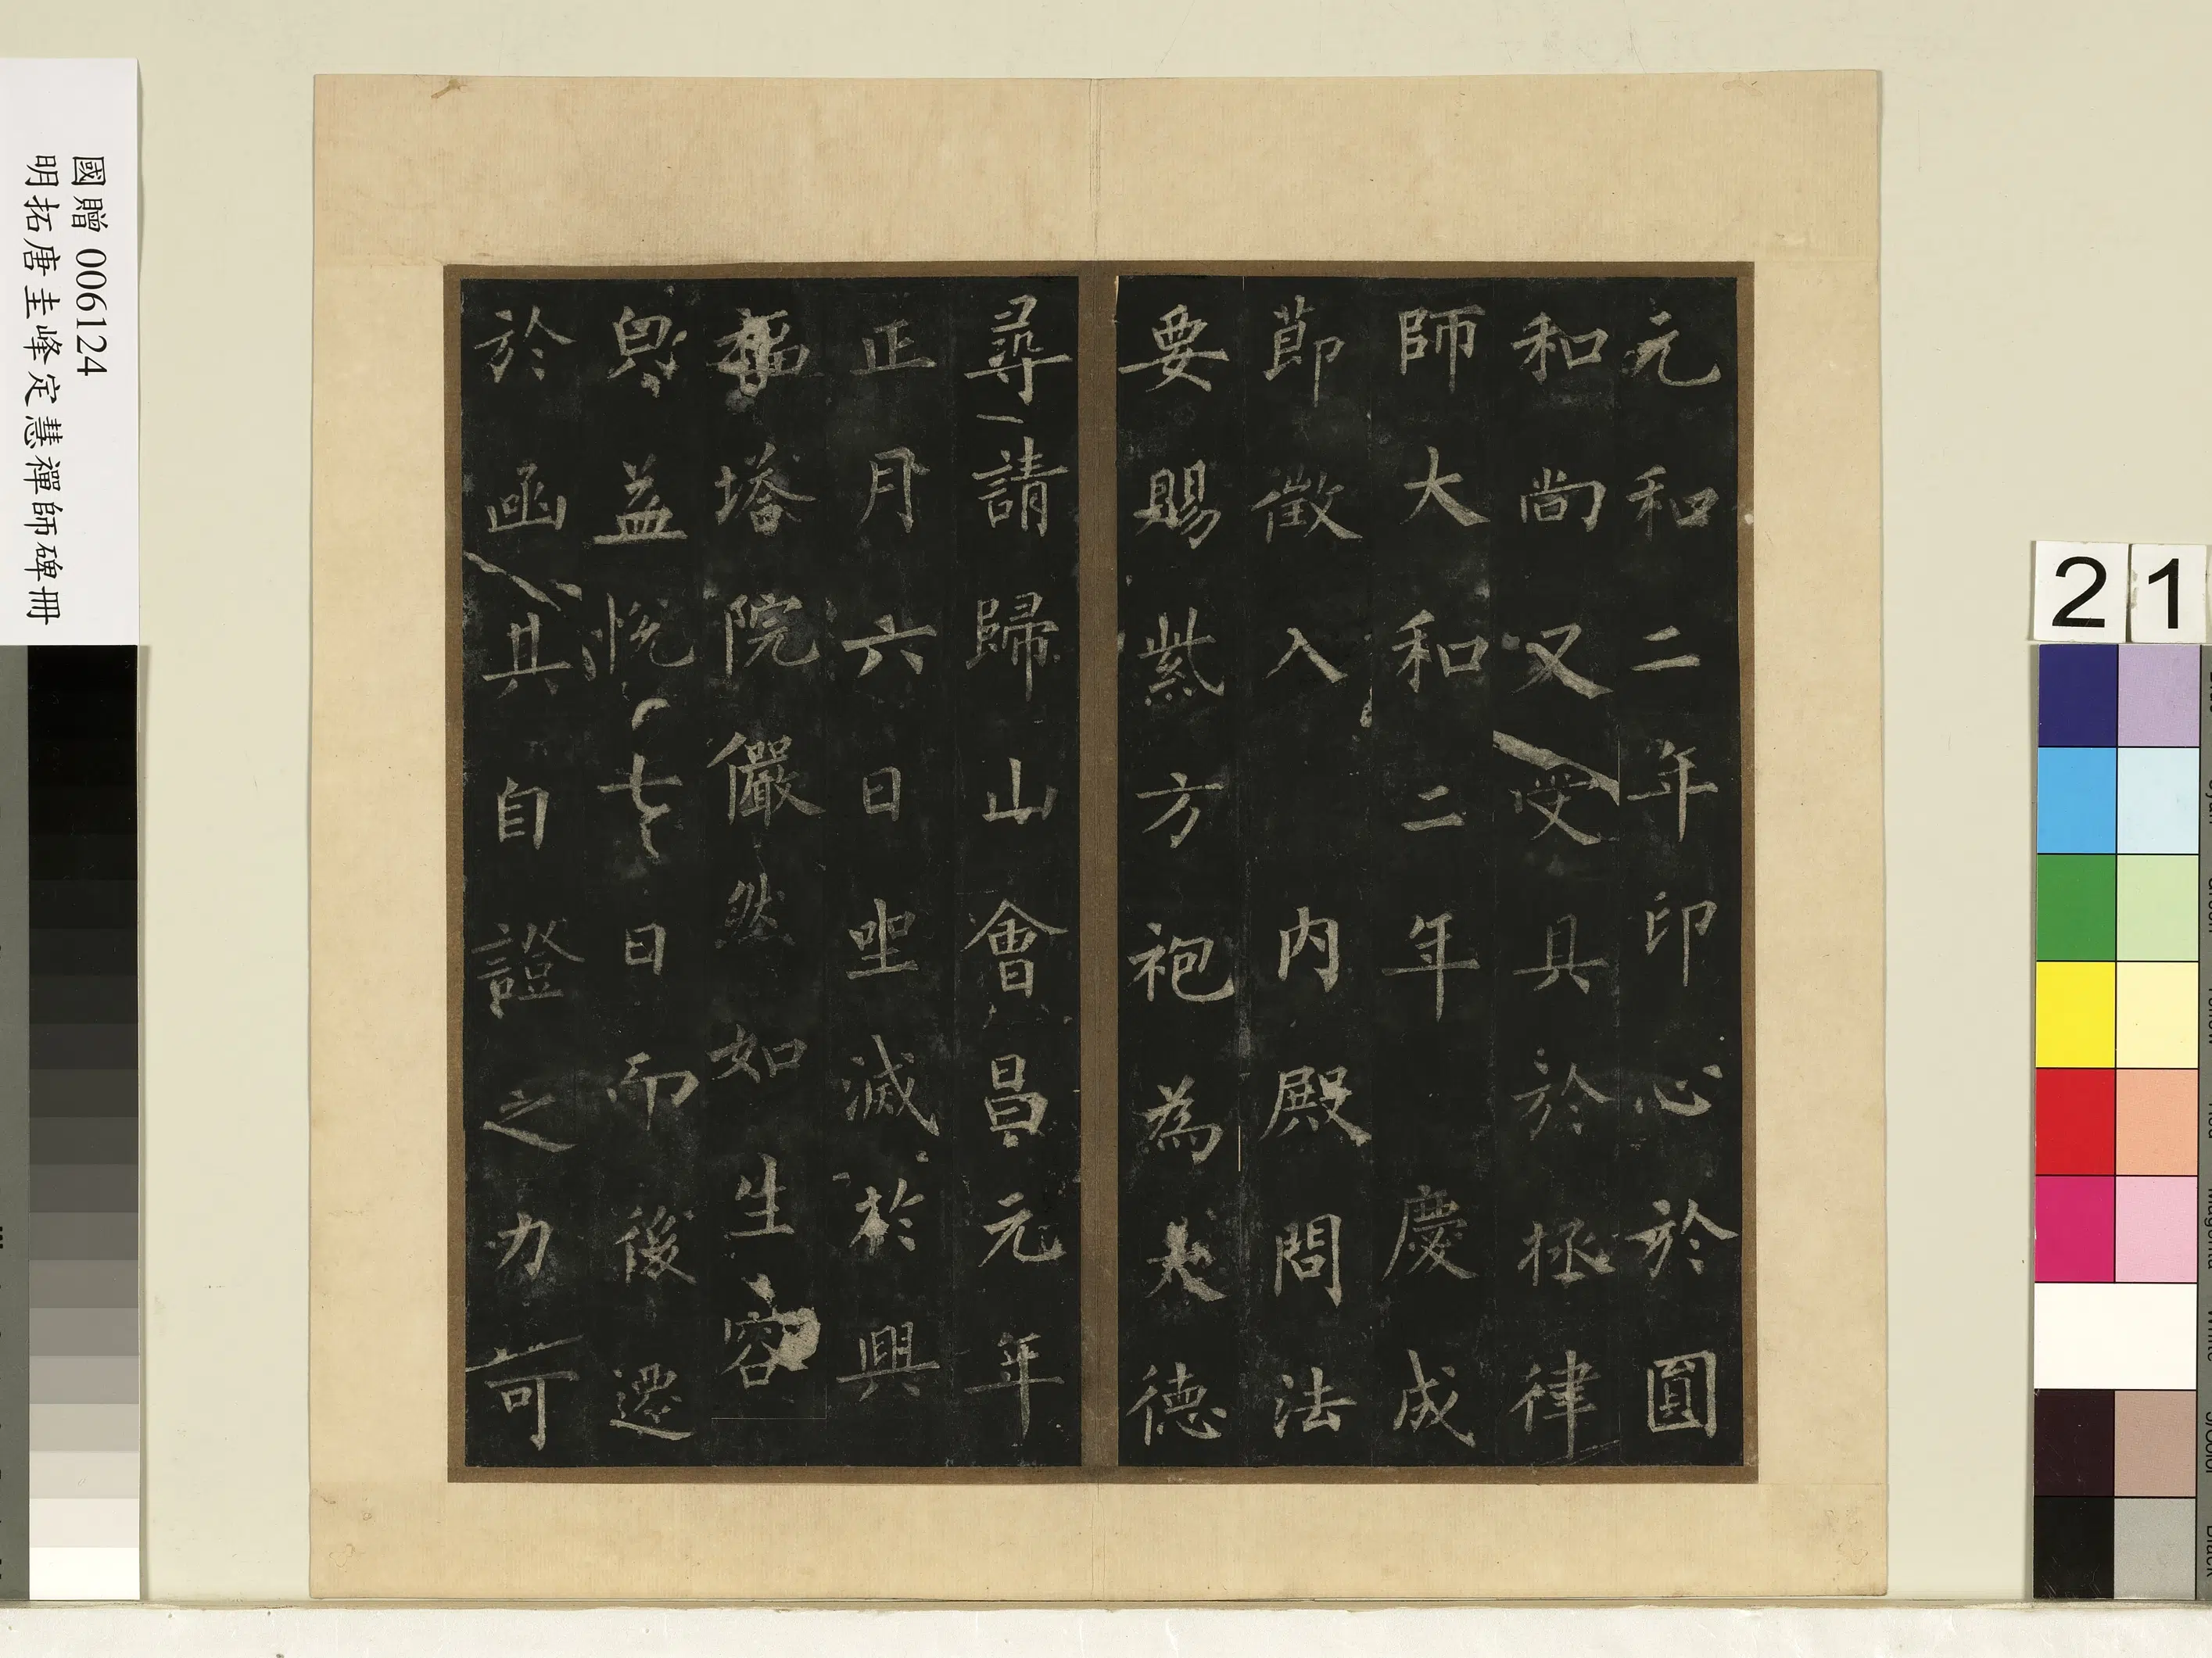 元和二年印心於圓
和尚又受具於拯律
師大和二年慶成
節徵入內殿問法
要賜紫方袍為大德
尋請歸山會昌元年
正月六日坐滅於興
福塔院儼然如生容
皃益悅七日而後遷
於函其自證之力可
國贈 006124
明拓唐圭峰定慧禪師碑冊
21